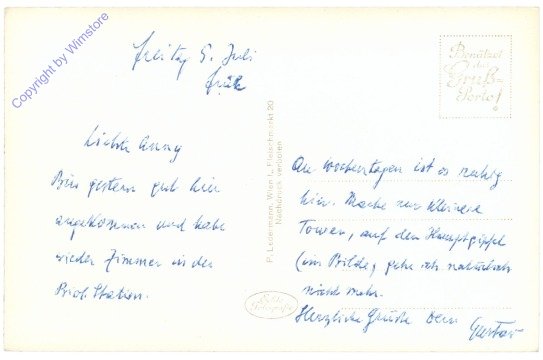 Copyright by Wimstore
Freitag 5. Juli
früh
Benützet
das
Gruß-
Porto!
Liebste Anny
Bin gestern gut hier
angekommen und habe
wieder Zimmer in der
Biol. Station.
P. Ledermann, Wien I., Fleischmarkt 20
Nachdruck verboten
Echte
Fotografie
An Wochentagen ist es ruhig
hier. Mache nur kleinere
Touren, auf den Hauptgipfel
(im Bilde) gehe ich natürlich
nicht mehr.
Herzliche Grüße Dein
Gustav